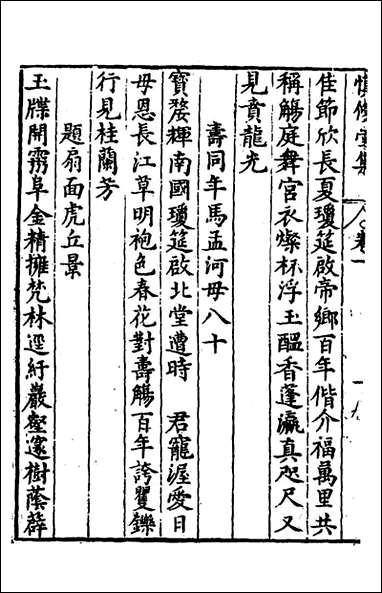 慎修堂集 卷一
佳節欣長夏瓊筵啟帝鄉百年偕介福萬里共
稱觴庭舞宮衣燦杯浮玉醞香蓬瀛真咫尺又
見賁龍光
壽同年馬孟河母八十
寶婺輝南國瓊筵啟北堂遭時　君寵渥愛日
母恩長江草明袍色春花對壽觴百年誇矍鑠
行見桂蘭芳
題扇面虎丘景
玉牒開雱阜金精擁梵林逕紆巖壑邃樹蔭薜